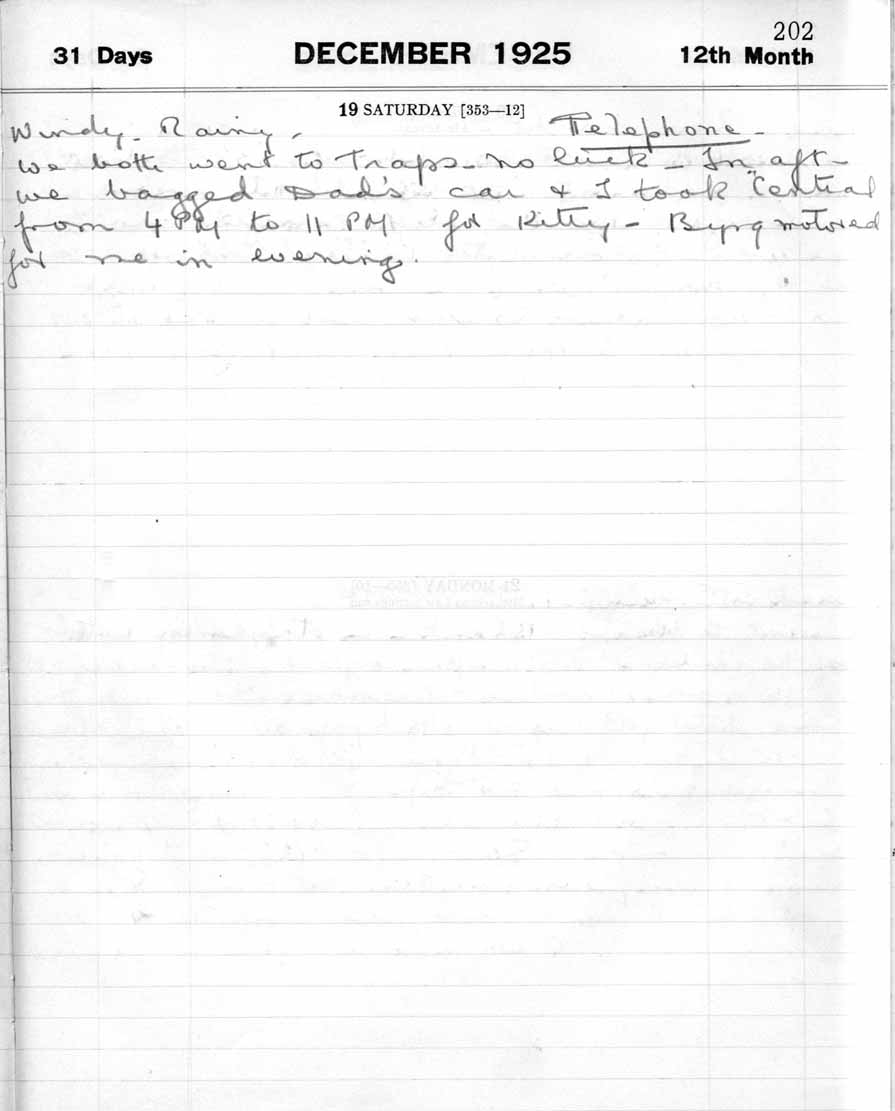 202
31 Days DECEMBER 1925 12th Month
19 SATURDAY [353—12]
Windy. Rainy. Telephone -
we both went to Traps - no luck - In aft -
we bagged Dad's car & I took "Central
from 4 PM to 11 PM for Kitty - Byrg motored
for me in evening.